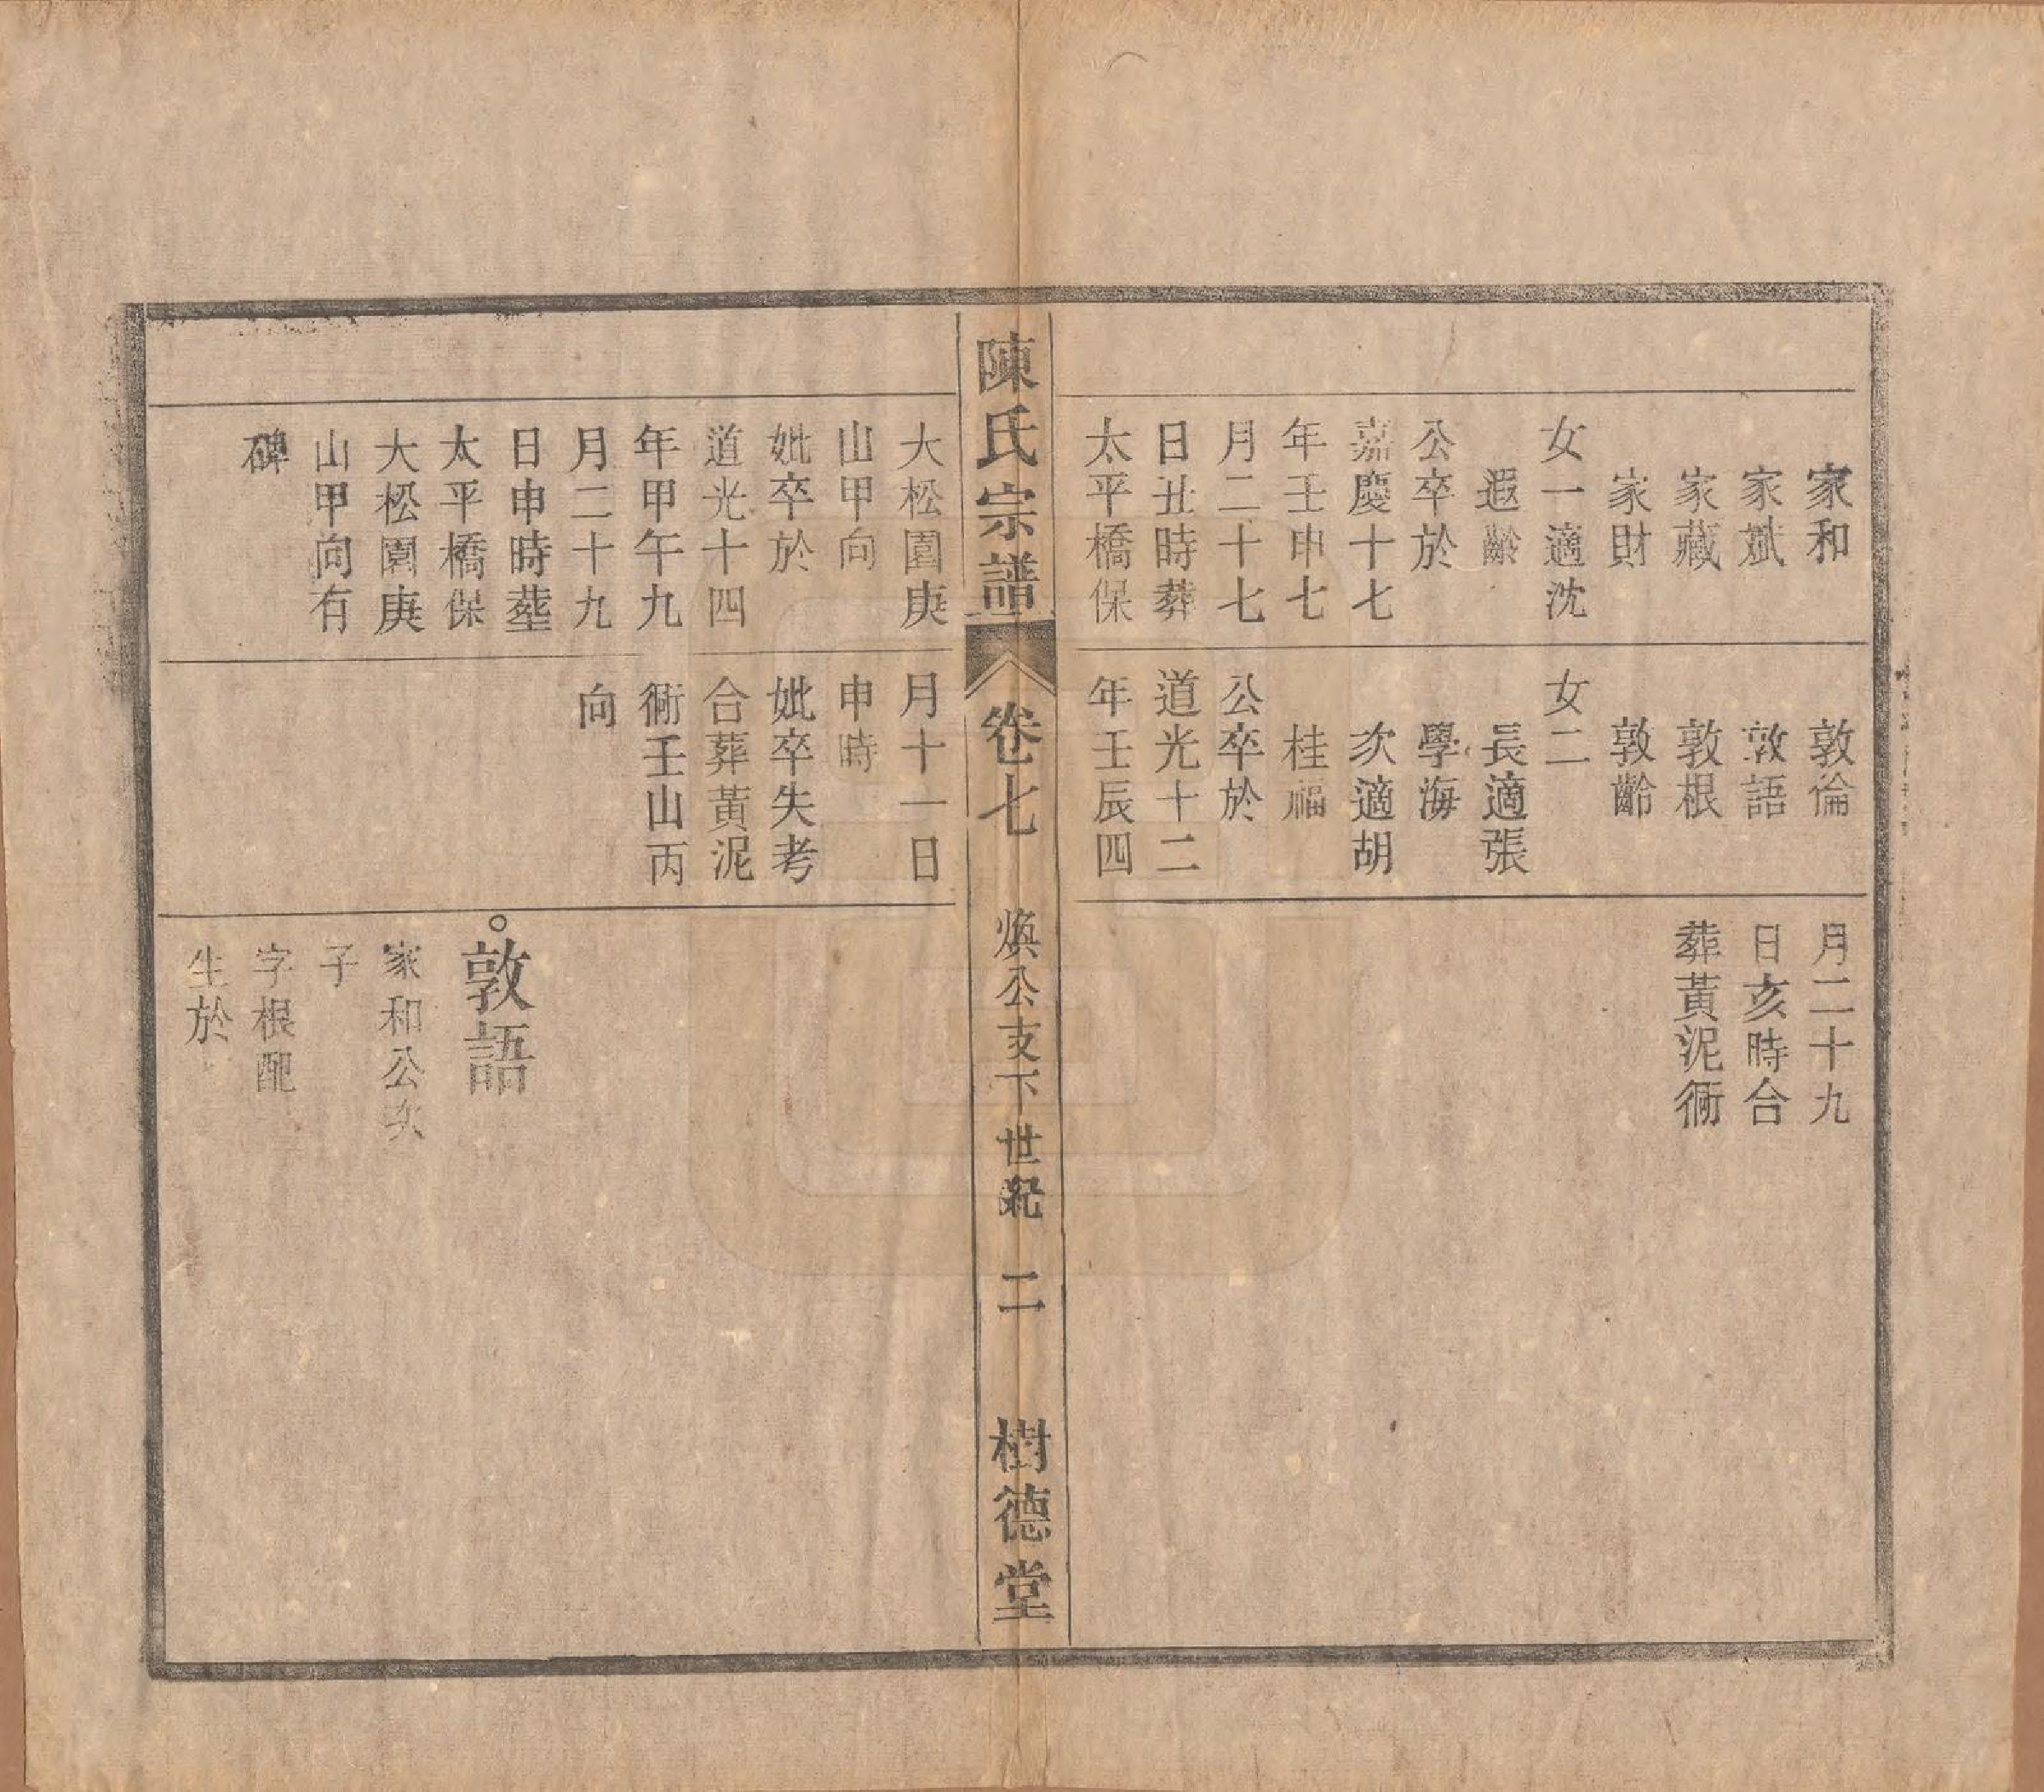 家和
家斌
家藏
家財
女一適沈
遐齡
公卒於
嘉慶十七
年壬申七
月二十七
日丑時葬
太平橋保
敦倫
敦語
敦根
敦齡
女二
長適張
學海
次適胡
桂福
公卒於
道光十二
年壬辰四
月二十九
日亥時合
葬黃泥衕
陳氏宗譜
卷七
煥公支下世紀
二
樹德堂
大松園庚
山甲向
妣卒於
道光十四
年甲午九
月二十九
日申時塟
太平橋保
大松園庚
山甲向有
碑
月十一日
申時
妣卒失考
合葬黃泥
衕壬山丙
向
敦語
家和公次
子
字根配
生於